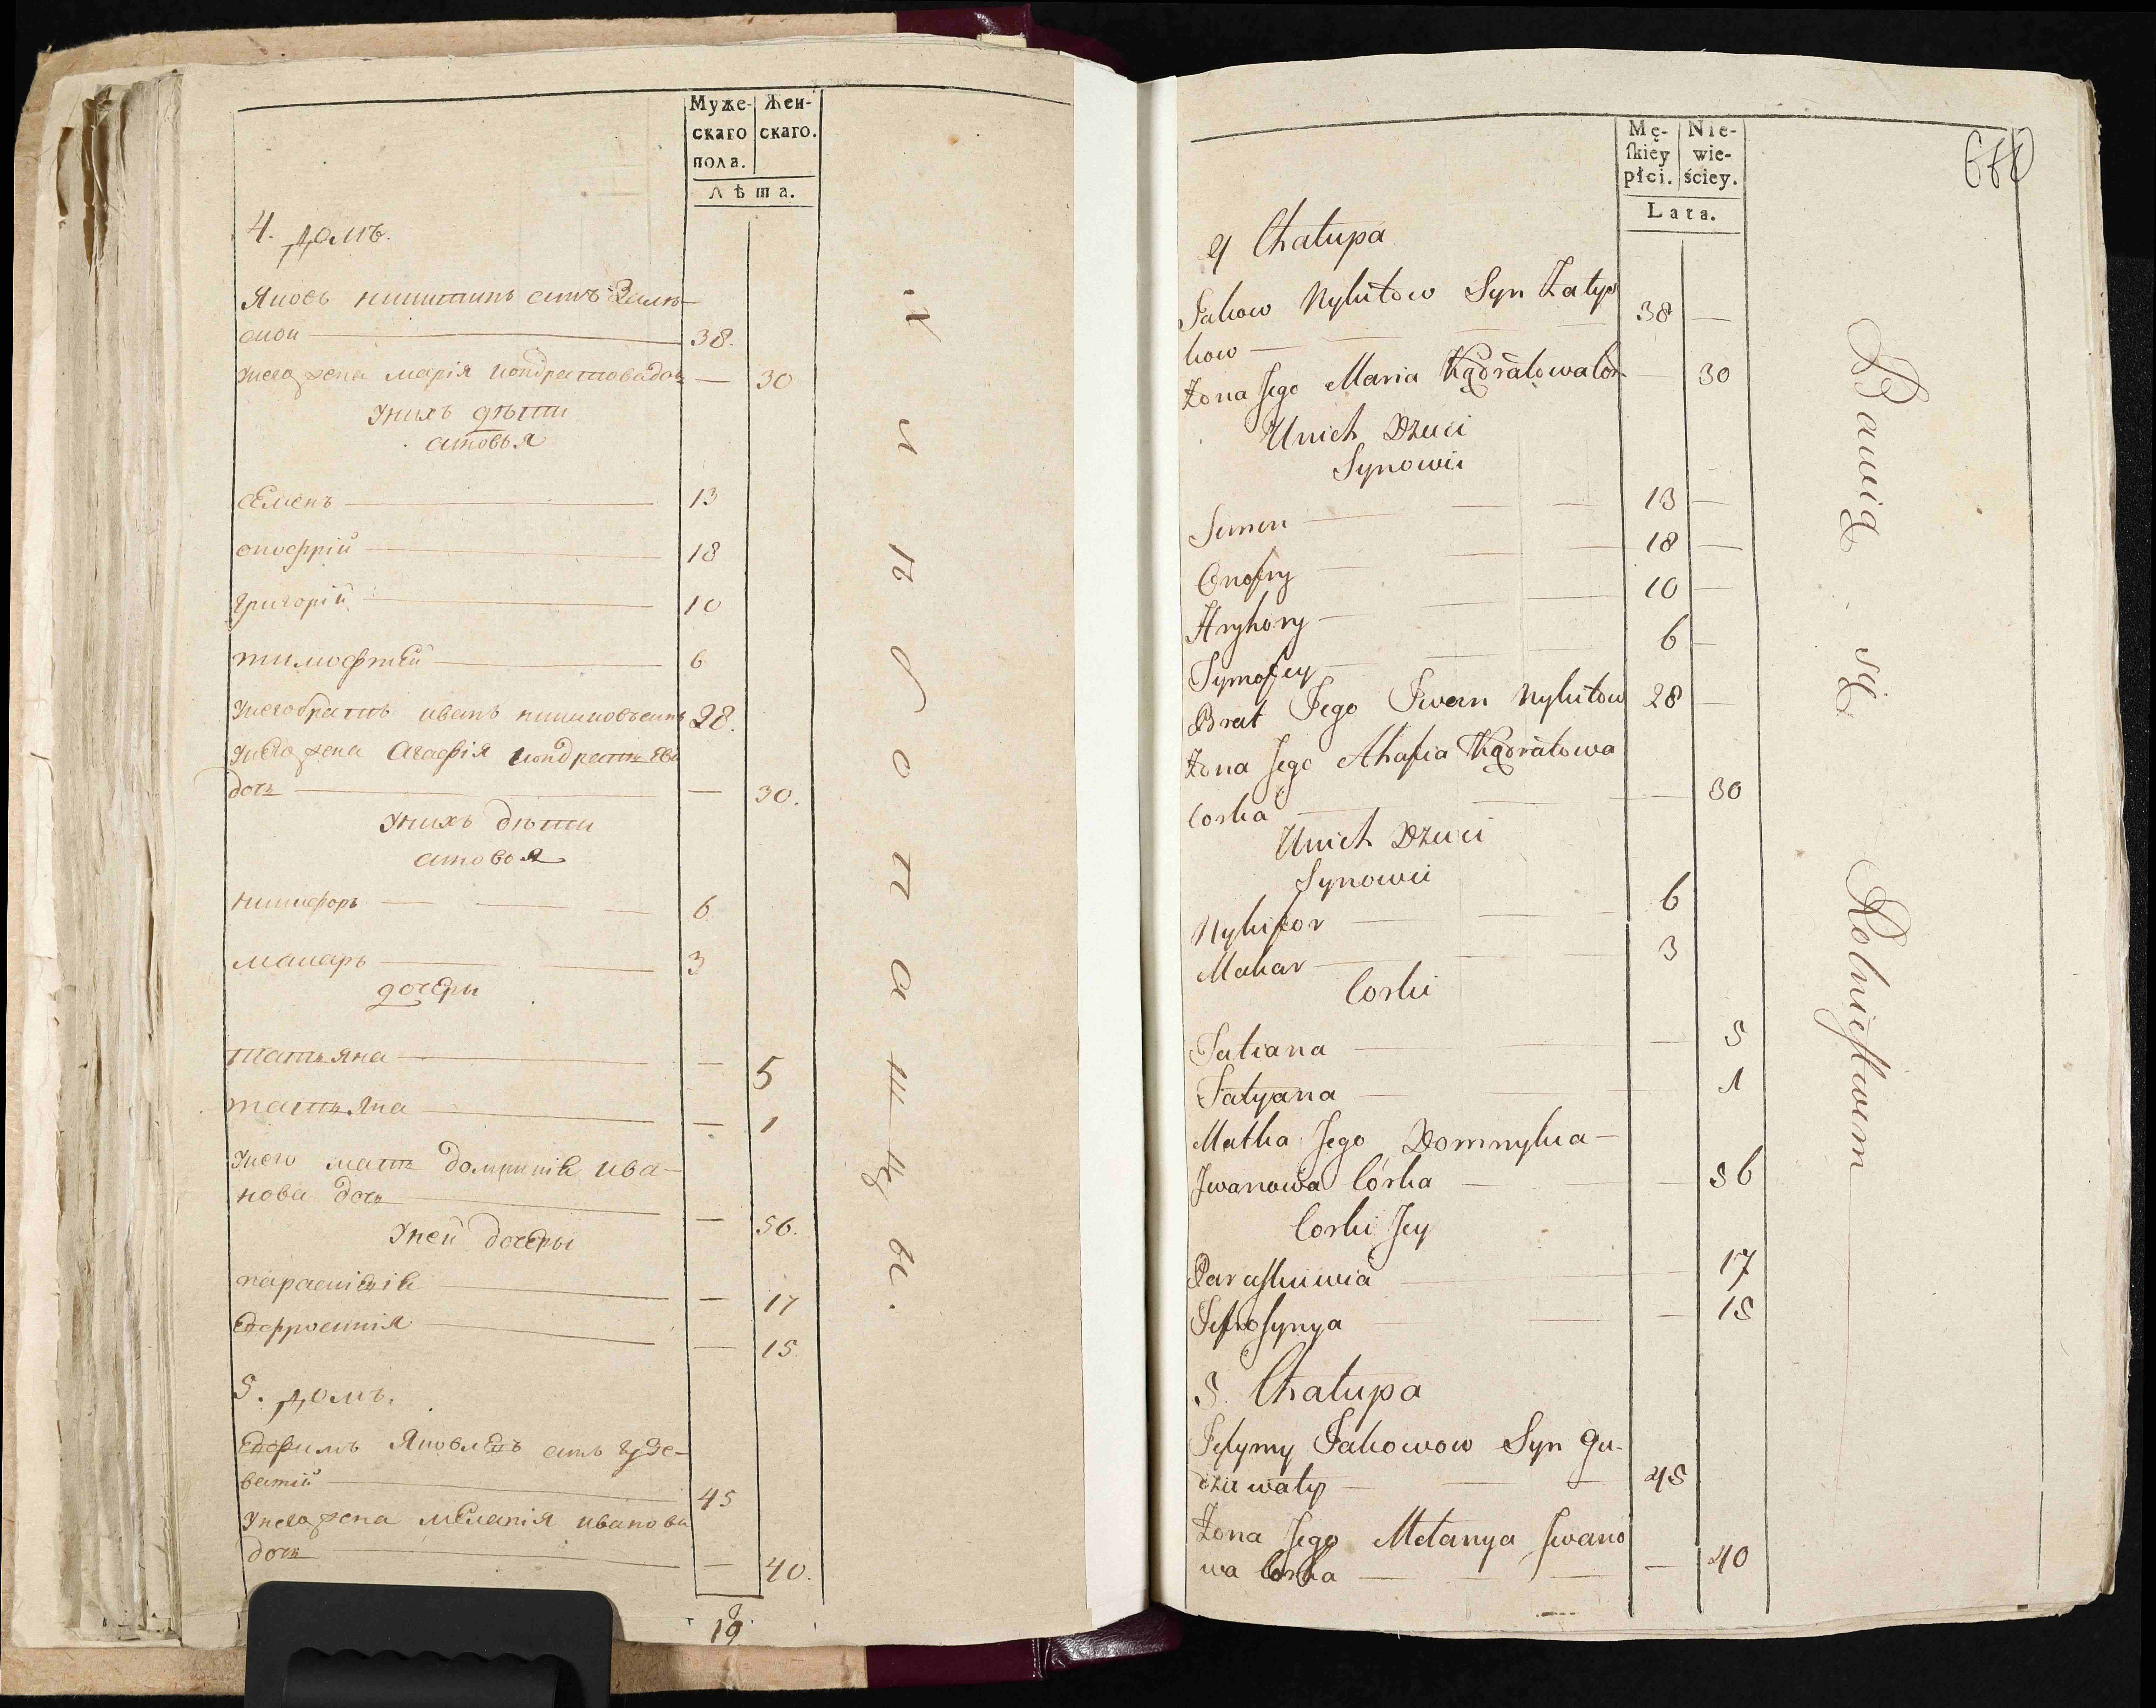 Муже-
скаго
пола.
Жен-
скаго.
Лѣта.
4. домъ.
Яковъ никитинъ сынъ
38.
Унего жена марія кондратовадоч
— 30
Унихъ дѣти
сыновья
семенъ — 13
онофрій — 18
григорій — 10
тимофтей — 6
Унего братъ иванъ 28.
Унего жена Агафія кондратьева
дочь — 30.
Унихъ дѣти
сыновья
никифоръ — 6
макаръ — 3
дочеры
татьяна — 5
татьяна — 1
Унего мать домникія ива-
нова дочь — 56.
Уней дочеры
параскивія — 17
Евфросинія — 15.
5. домъ.
Евфимъ Яковлевъ сынъ гудзе-
ватій — 45
Унего жена меланія иванова
дочь — 40.
19
хлѣбопашцы.
Mę-
ſkiey
płci.
Nie-
wie-
ściey.
Lata.
4 Chałupa
Jakow Nykitow Syn Załyw
kow — 38 —
Żona Jego Maria Kądratowa Cor. — 30
Unich Dzieci
Synowie
Semen — 13 —
Onofry — 18 —
Hryhory — 10 —
Tymofey — 6 —
Brat Jego Iwan Nykitow 28 —
Żona Jego Ahafia Kądratowa
Corka — 30
Unich Dzieci
Synowie
Nykifor — 6
Makar — 3
Corki
Tatiana — 5
Tatyana — 1
Matka Jego Domnykia —
Iwanowa Córka — 56
Corki Jey
Paraſkiwia — 17
Jefroſynya — 15
5. Chałupa
Jefymy Jakowow Syn Gu-
dziewaty — 45
Żona Jego Melanya Iwano
wa Corka — 40
Bawią się Rolnictwem